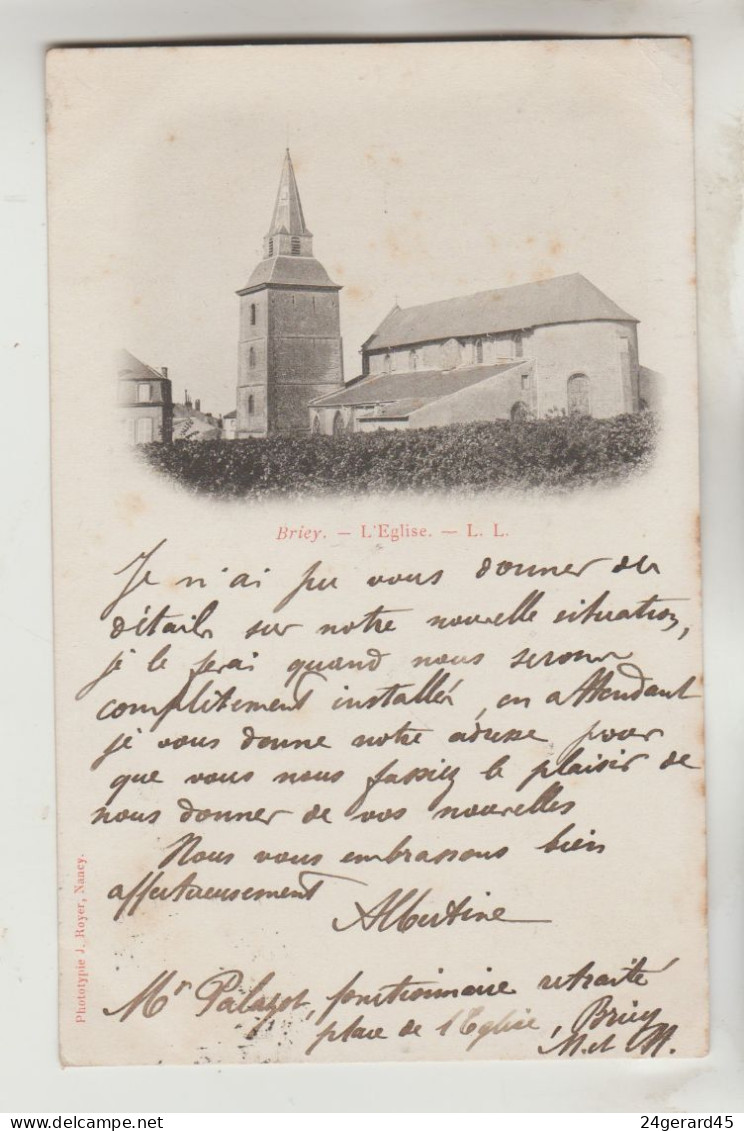 Briey. — L'Eglise. — L. L.
Je n'ai pu vous donner du
détail sur notre nouvelle situation,
je le ferai quand nous serons
complètement installés, en attendant
je vous donne notre adresse pour
que vous nous fassiez le plaisir de
nous donner de vos nouvelles
Nous vous embrassons bien
affectueusement
Albertine
Mr Palazot, fonctionnaire retraité
place de l'Eglise, Briey
M. et M.
Phototypie J. Royer, Nancy.
24gerard45
www.delcampe.net